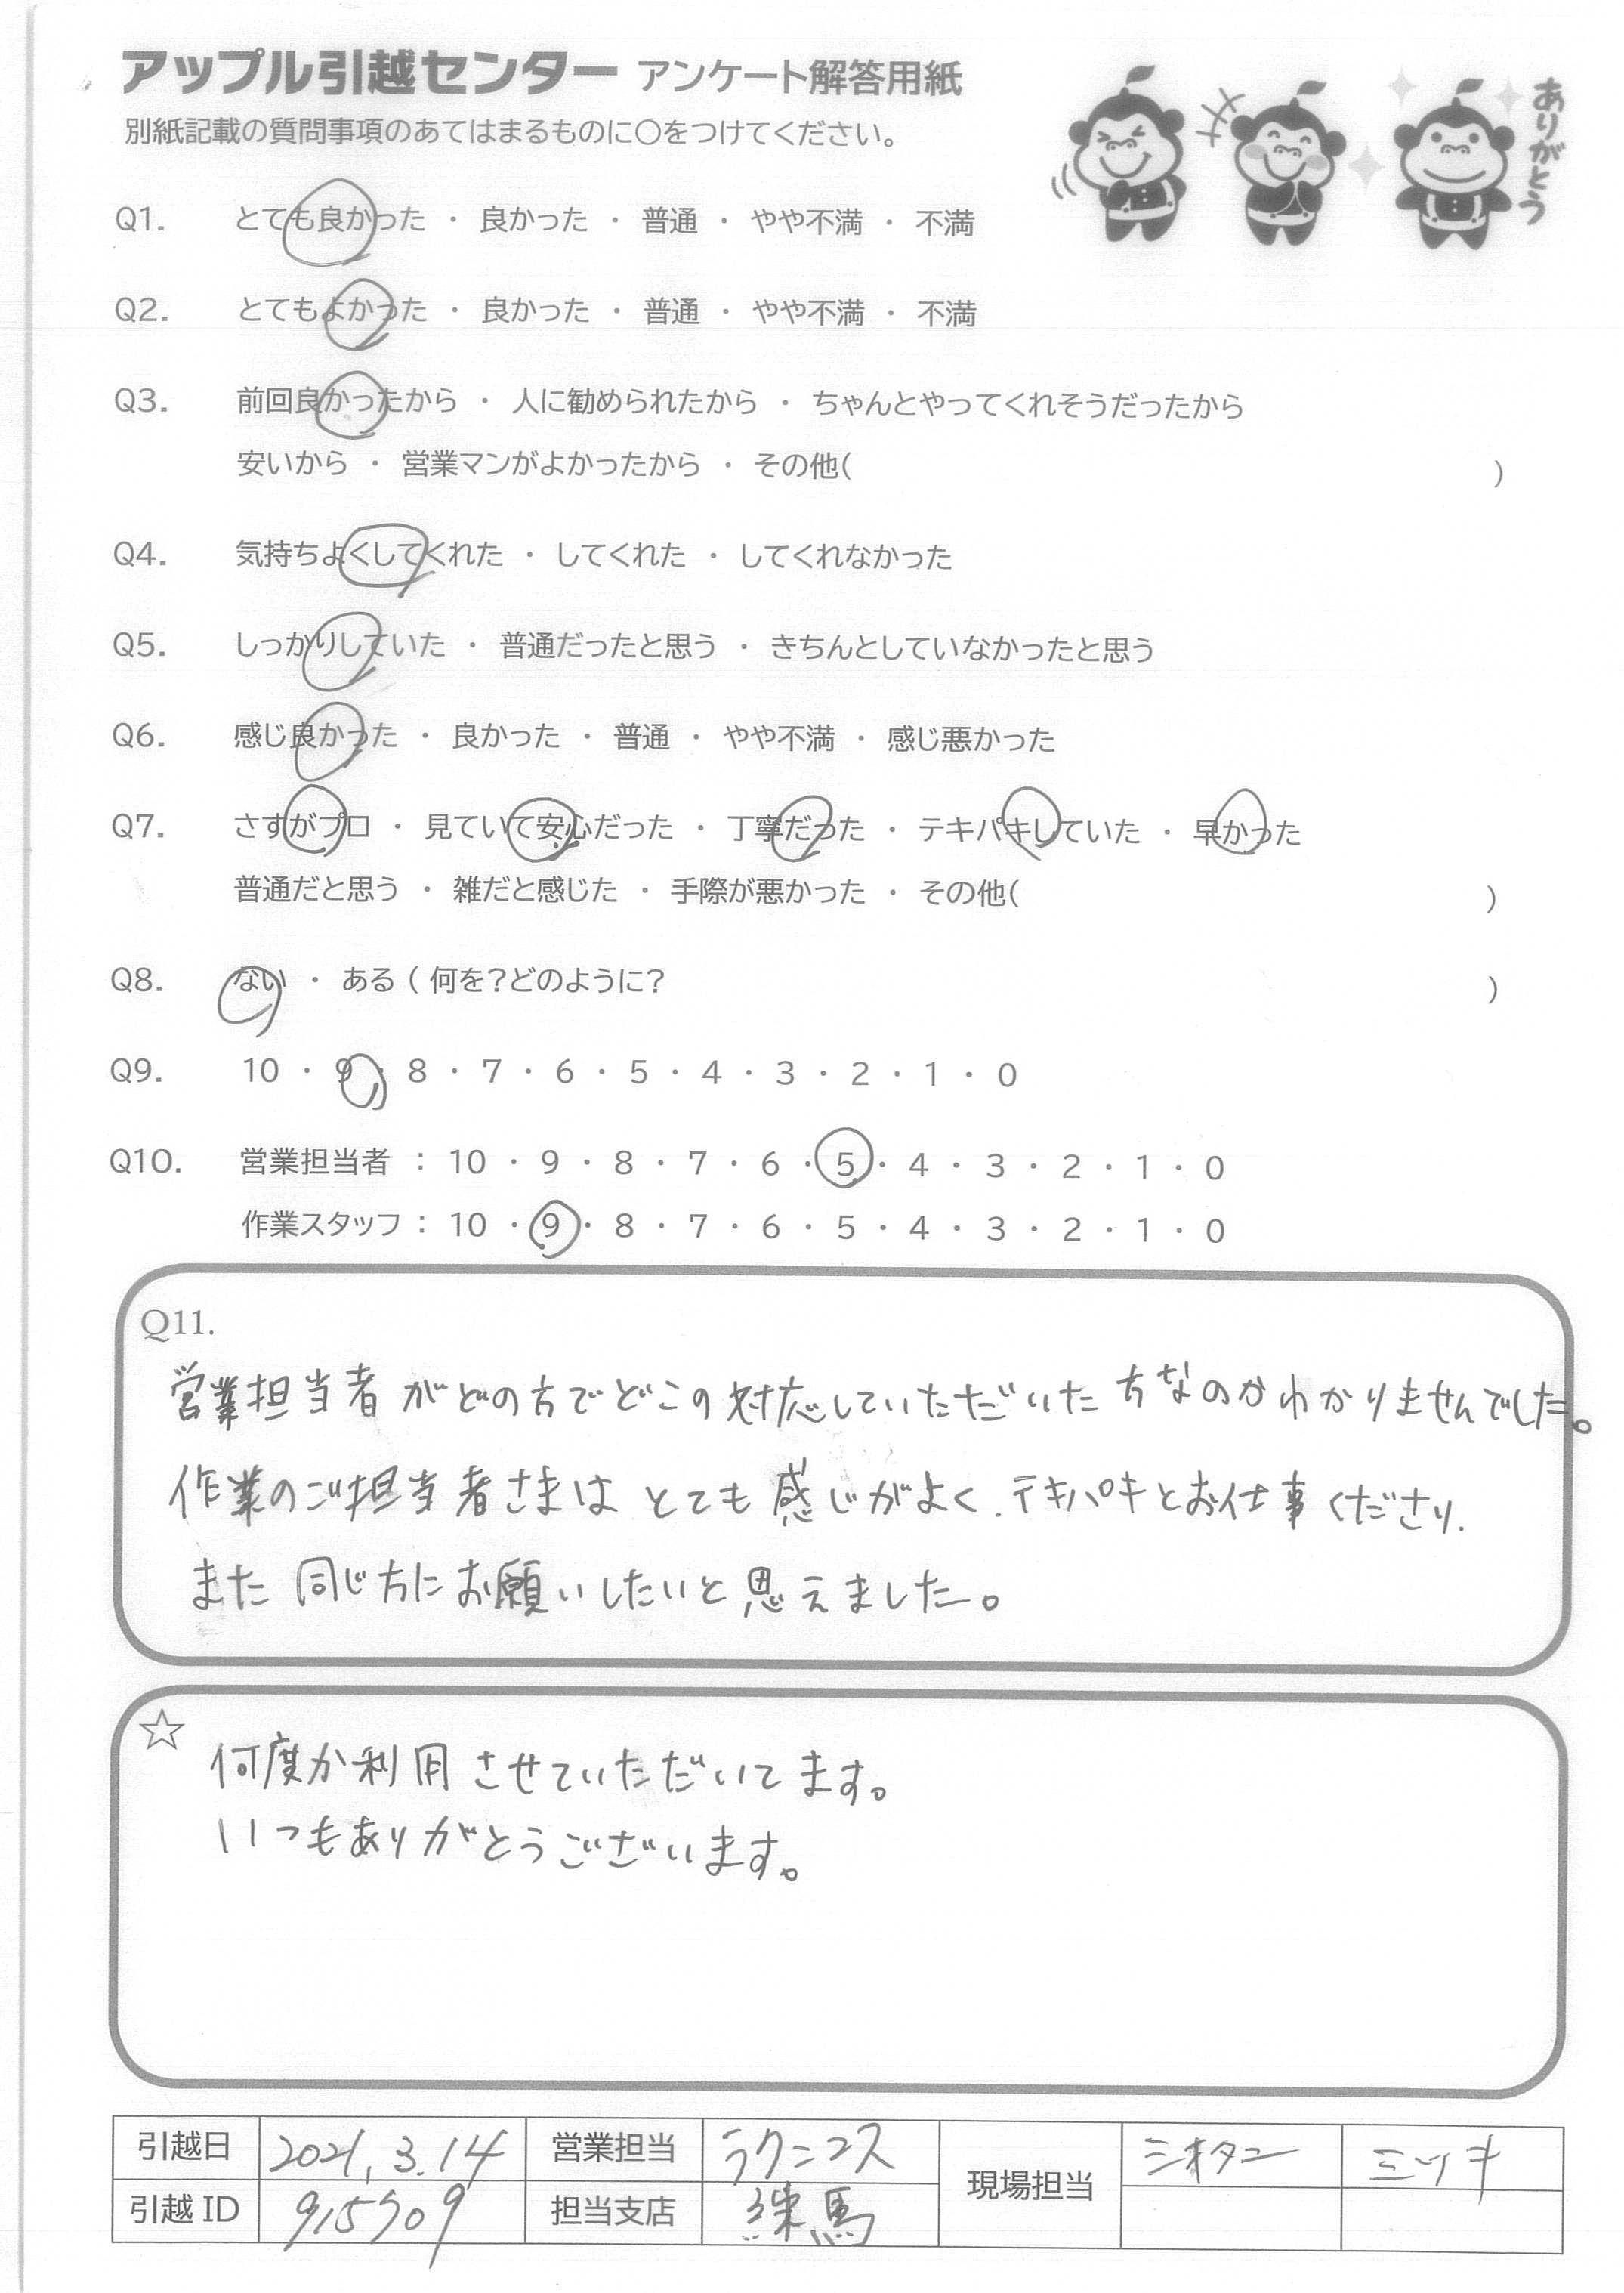 アップル引越センター アンケート解答用紙
別紙記載の質問事項のあてはまるものに〇をつけてください。
ありがとう
Q1. とても良かった ・ 良かった ・ 普通 ・ やや不満 ・ 不満
Q2. とてもよかった ・ 良かった ・ 普通 ・ やや不満 ・ 不満
Q3. 前回良かったから ・ 人に勧められたから ・ ちゃんとやってくれそうだったから
安いから ・ 営業マンがよかったから ・ その他( )
Q4. 気持ちよくしてくれた ・ してくれた ・ してくれなかった
Q5. しっかりしていた ・ 普通だったと思う ・ きちんとしていなかったと思う
Q6. 感じ良かった ・ 良かった ・ 普通 ・ やや不満 ・ 感じ悪かった
Q7. さすがプロ ・ 見ていて安心だった ・ 丁寧だった ・ テキパキしていた ・ 早かった
普通だと思う ・ 雑だと感じた ・ 手際が悪かった ・ その他( )
Q8. ない ・ ある ( 何を?どのように? )
Q9. 10 ・ 9 ・ 8 ・ 7 ・ 6 ・ 5 ・ 4 ・ 3 ・ 2 ・ 1 ・ 0
Q10. 営業担当者 : 10 ・ 9 ・ 8 ・ 7 ・ 6 ・ 5 ・ 4 ・ 3 ・ 2 ・ 1 ・ 0
作業スタッフ : 10 ・ 9 ・ 8 ・ 7 ・ 6 ・ 5 ・ 4 ・ 3 ・ 2 ・ 1 ・ 0
Q11.
営業担当者がどの方でどこの対応していただいた方なのかわかりませんでした。
作業のご担当者さまはとても感じがよく、テキパキとお仕事くださり、
また同じ方にお願いしたいと思えました。
☆
何度か利用させていただいてます。
いつもありがとうございます。
引越日 2021.3.14 営業担当 ラクニコス 現場担当 ミツキ
引越ID 915709 担当支店 練馬